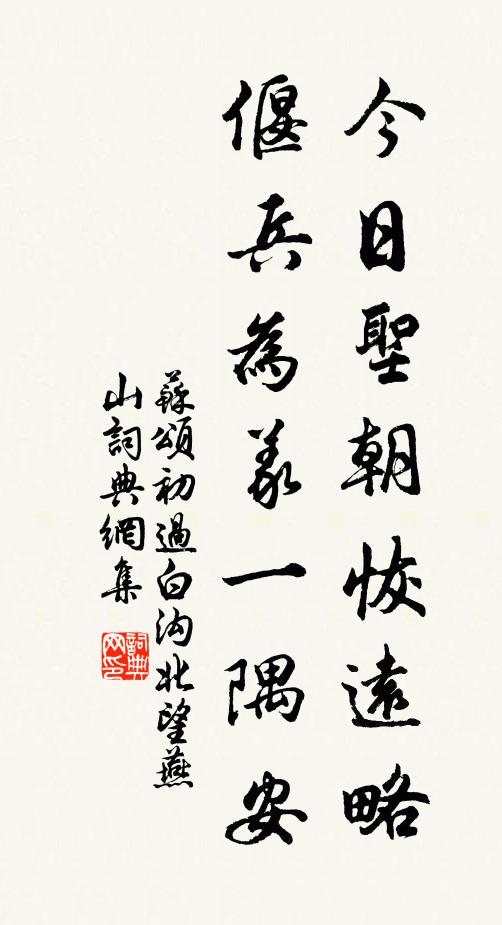 今日聖朝恢遠略
偃兵為義一隅安
蘇頌初過白沟北望燕
山詞典網集
詞典
网印